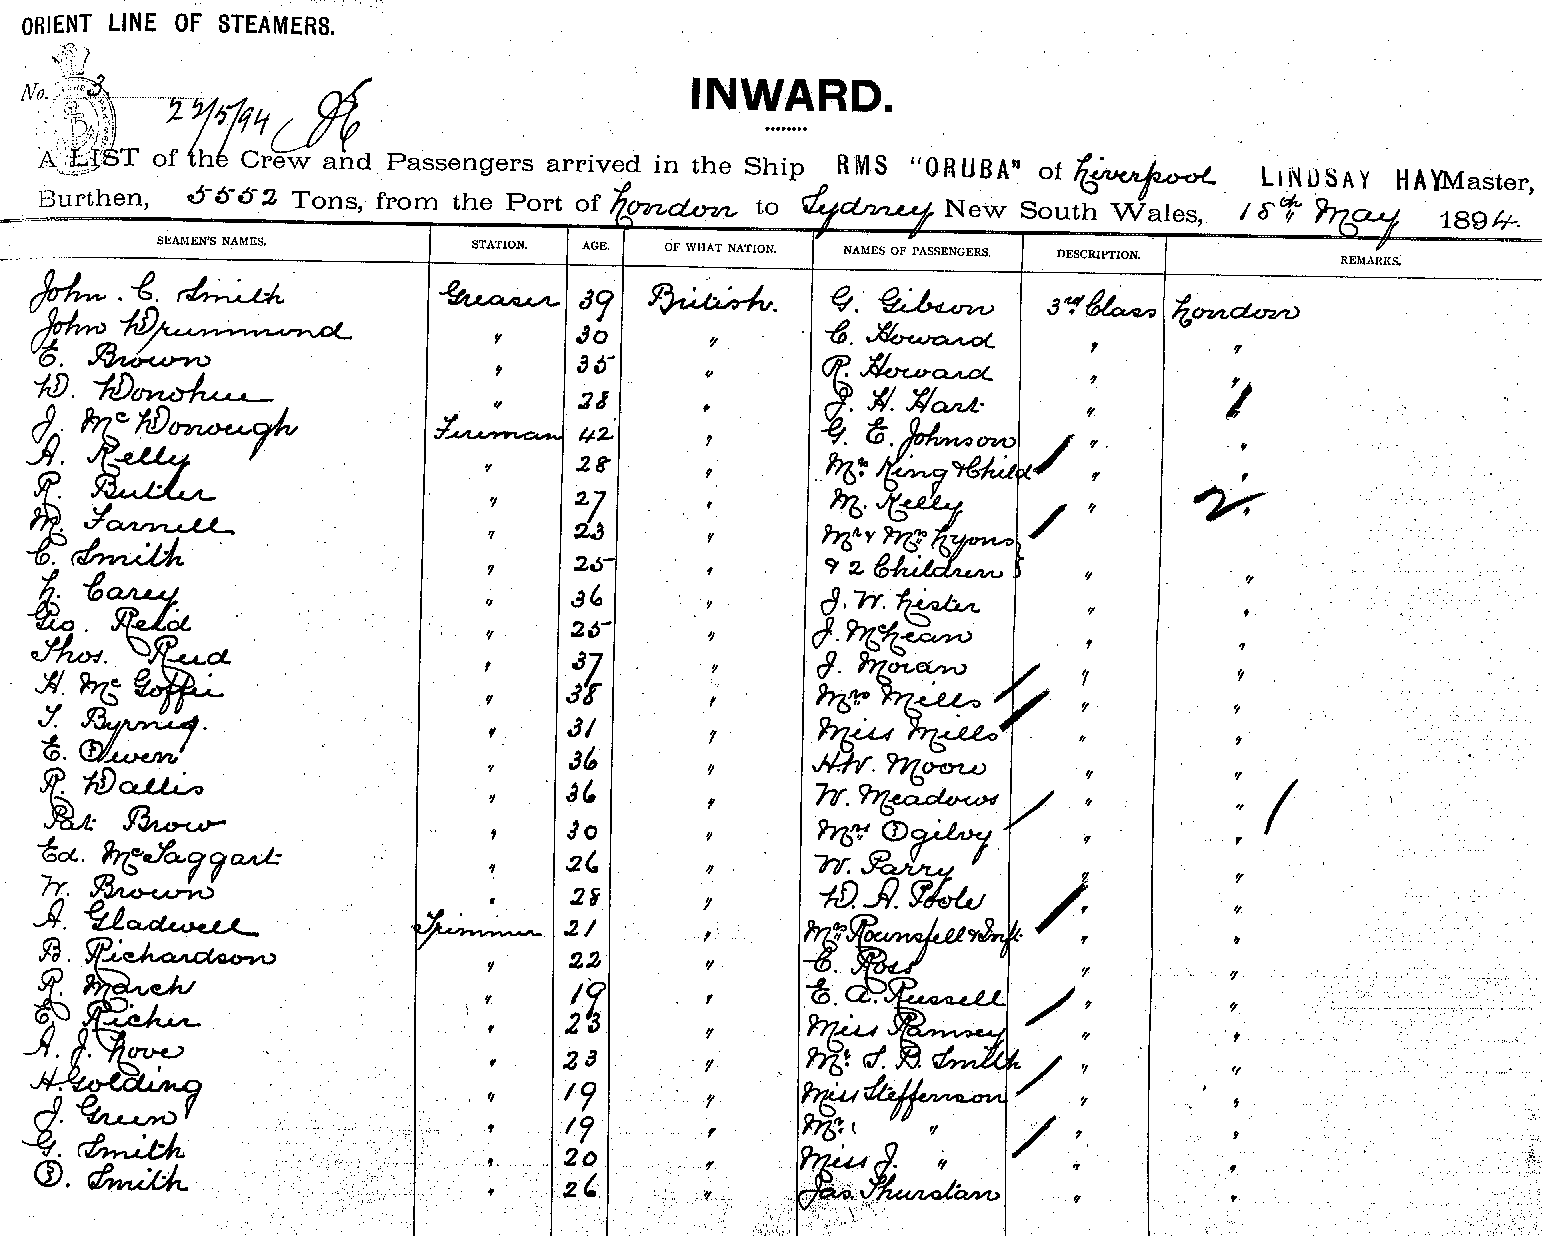 ORIENT LINE OF STEAMERS.
No. 3.
22/5/94
INWARD.
A LIST of the Crew and Passengers arrived in the Ship RMS "ORUBA" of Liverpool LINDSAY HAY Master,
Burthen, 5552 Tons, from the Port of London to Sydney New South Wales, 18th May 1894.
SEAMEN'S NAMES. STATION. AGE. OF WHAT NATION. NAMES OF PASSENGERS. DESCRIPTION. REMARKS.
John. C. Smith Greaser 39 British. G. Gibson 3rd Class London
John Drummond " 30 " C. Howard " "
E. Brown " 35 " R. Howard " "
D. Donohue " 28 " J. H. Hart " "
J. McDonough Fireman 42 " G. E. Johnson " "
A. Kelly " 28 " Mrs King & Child " "
R. Butler " 27 " M. Kelly " 2 "
M. Farnell " 23 " Mr & Mrs Lyons
C. Smith " 25 " & 2 Children } " "
L. Carey " 36 " J. W. Lister " "
Geo. Reid " 25 " J. McLean " "
Thos. Reid " 37 " J. Moran " "
H. McGoffie " 38 " Mrs Mills " "
T. Byrnig. " 31 " Miss Mills " "
E. Owen " 36 " H.W. Moore " "
R. Wallis " 36 " W. Meadows " "
Pat Brow " 30 " Mrs Ogilvy " "
Ed. McTaggart " 26 " W. Parry " "
W. Brown " 28 " D. A. Poole " "
A. Gladwell Trimmer 21 " Mrs Rounsfell & Inft " "
B. Richardson " 22 " E. Ross " "
R. March " 19 " E. A. Russell " "
E. Richer " 23 " Miss Ramsey " "
A. J. Love " 23 " Mr. S. B. Smith " "
H. Golding " 19 " Miss Steffenson " "
J. Green " 19 " Mr. " " "
G. Smith " 20 " Miss J. " " "
O. Smith " 26 " Jas. Thurstan " "